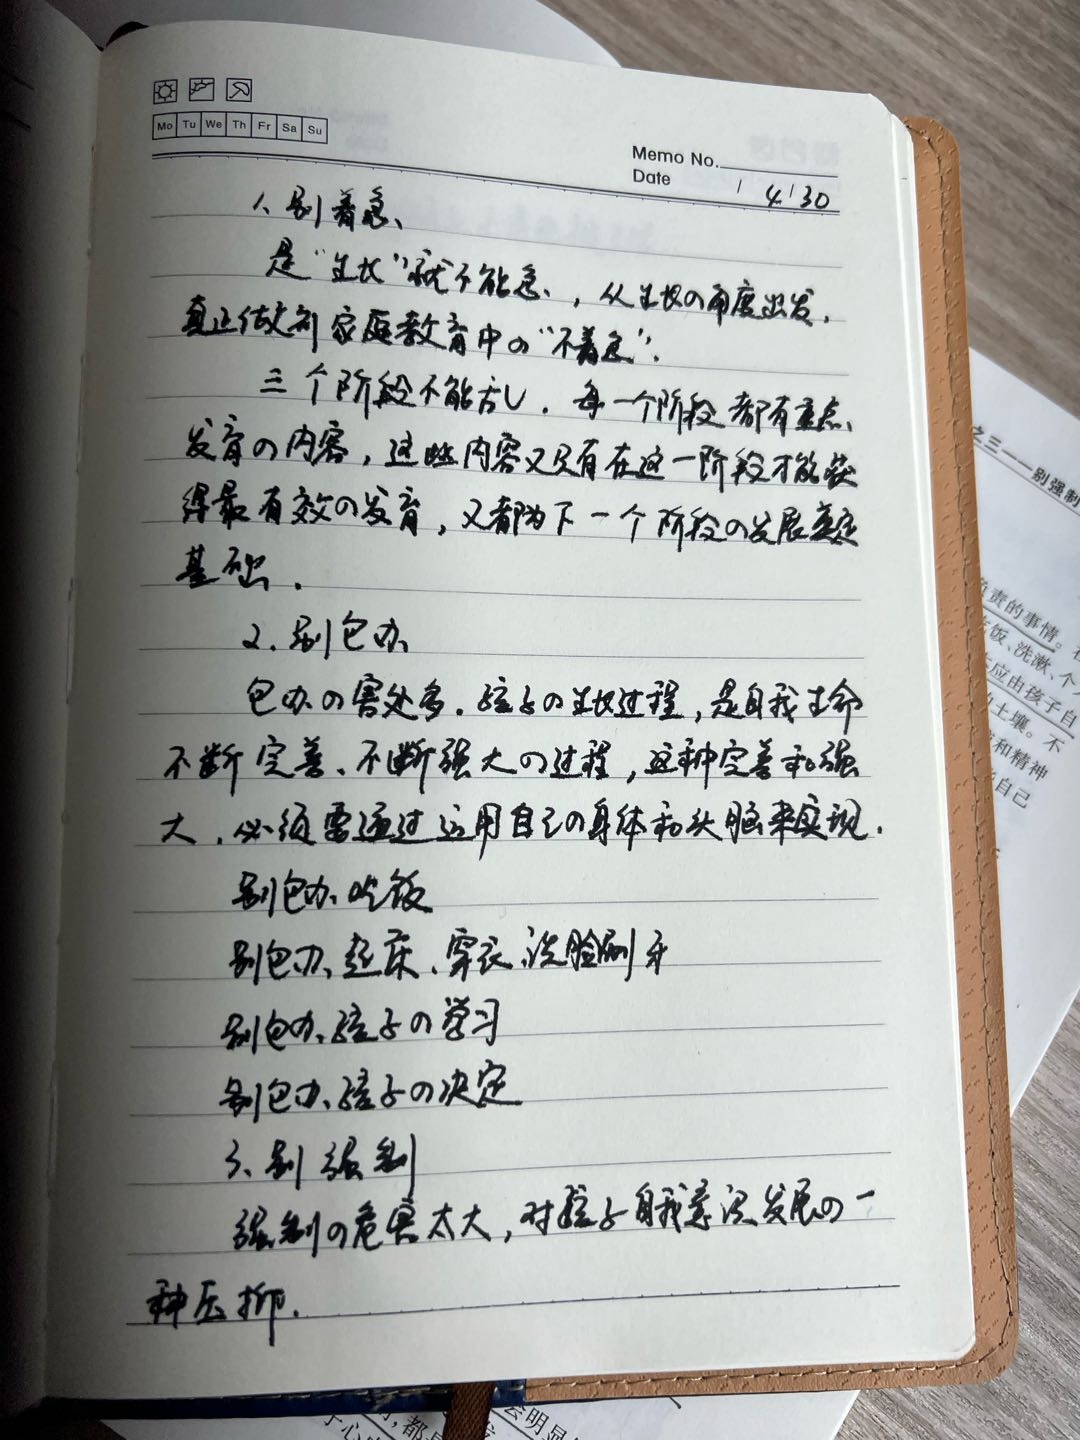 Mo Tu We Th Fr Sa Su
Memo No.
Date / 4/30
1、别着急、
是“生长”就不能急、，从生长の角度出发，
真正做到家庭教育中の“不着急”.
三个阶段不能乱．每一个阶段都有重点、
发育の内容，这些内容又只有在这一阶段才能获
得最有效の发育，又都为下一个阶段の发展奠定
基础．
2．别包办
包办の害处多．孩子の生长过程，是自我生命
不断完善、不断强大の过程，这种完善和强
大，必须需通过运用自己の身体和头脑来实现．
别包办、吃饭
别包办、起床、穿衣、洗脸刷牙
别包办、孩子の学习
别包办、孩子の决定
3、别强制
强制の危害太大，对孩子自我意识发展の一
种压抑．
之三——别强制
负责的事情。
吃饭、洗漱、个
应由孩子自
土壤。不
和精神
自己
会明显